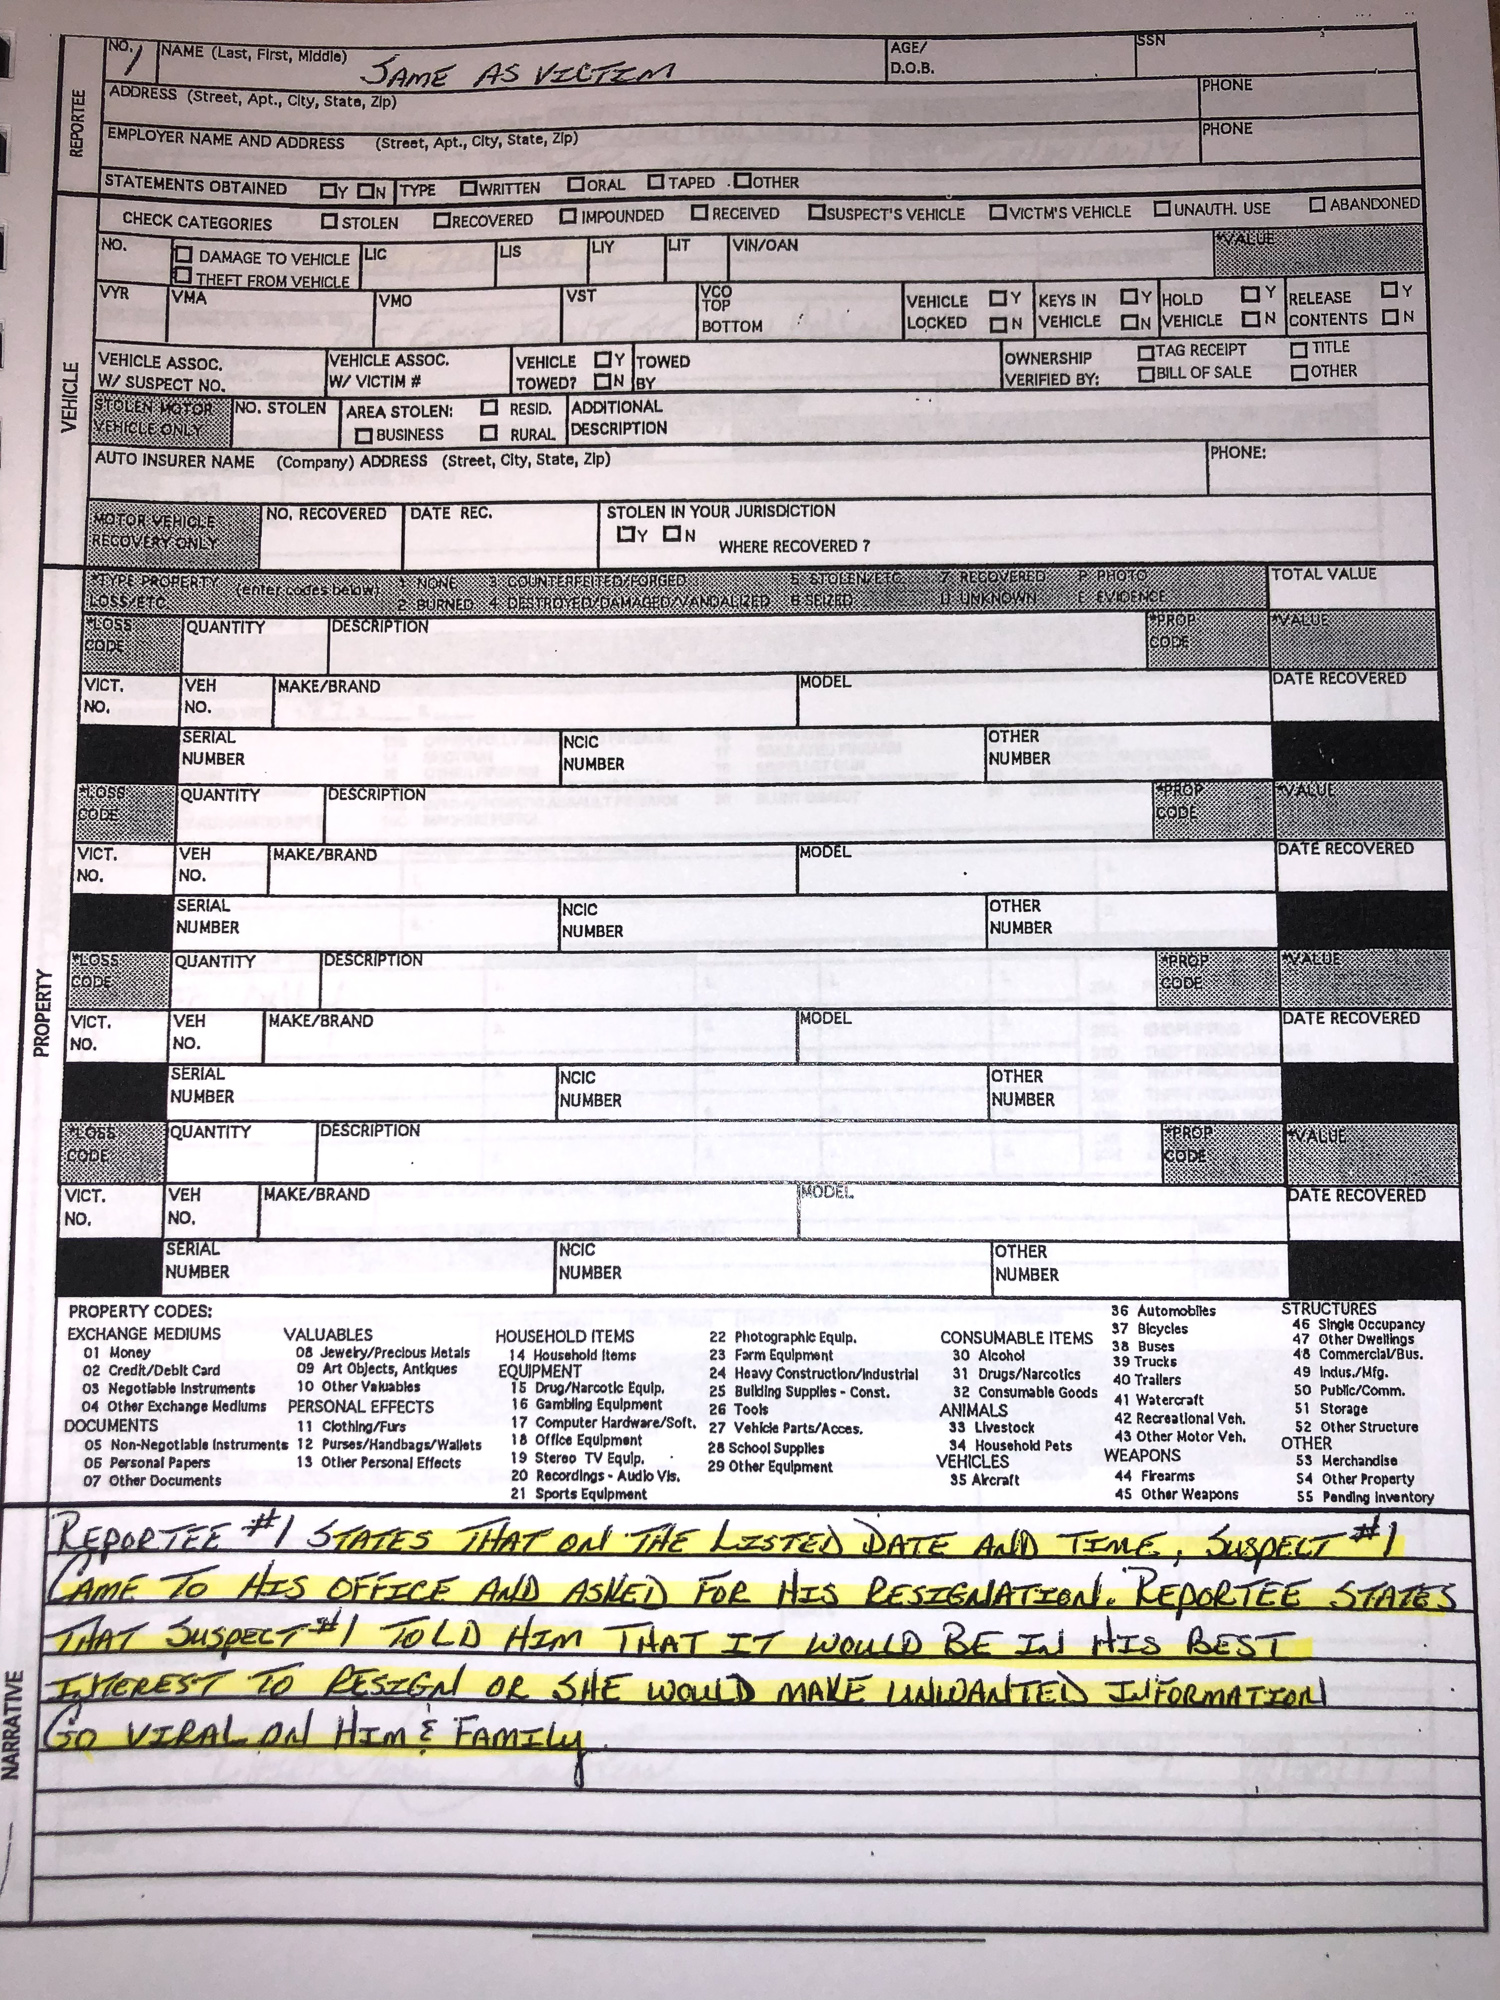 REPORTEE
NO. 1 NAME (Last, First, Middle) SAME AS VICTIM AGE/ D.O.B. SSN
ADDRESS (Street, Apt., City, State, Zip) PHONE
EMPLOYER NAME AND ADDRESS (Street, Apt., City, State, Zip) PHONE
STATEMENTS OBTAINED Y N TYPE WRITTEN ORAL TAPED OTHER
VEHICLE
CHECK CATEGORIES STOLEN RECOVERED IMPOUNDED RECEIVED SUSPECT'S VEHICLE VICTM'S VEHICLE UNAUTH. USE ABANDONED
NO. DAMAGE TO VEHICLE LIC LIS LIY LIT VIN/OAN *VALUE
THEFT FROM VEHICLE
VYR VMA VMO VST VCO TOP VEHICLE Y KEYS IN Y HOLD Y RELEASE Y
BOTTOM LOCKED N VEHICLE N VEHICLE N CONTENTS N
VEHICLE ASSOC. VEHICLE ASSOC. VEHICLE Y TOWED OWNERSHIP TAG RECEIPT TITLE
W/ SUSPECT NO. W/ VICTIM # TOWED? N BY VERIFIED BY: BILL OF SALE OTHER
STOLEN MOTOR NO. STOLEN AREA STOLEN: RESID. ADDITIONAL
VEHICLE ONLY BUSINESS RURAL DESCRIPTION
AUTO INSURER NAME (Company) ADDRESS (Street, City, State, Zip) PHONE:
MOTOR VEHICLE NO. RECOVERED DATE REC. STOLEN IN YOUR JURISDICTION
RECOVERY ONLY Y N WHERE RECOVERED ?
PROPERTY
*TYPE PROPERTY (enter codes below) 1 NONE 3 COUNTERFEITED/FORGED 5 STOLEN/ETC. 7 RECOVERED P PHOTO TOTAL VALUE
LOSS/ETC. 2 BURNED 4 DESTROYED/DAMAGED/VANDALIZED 6 SEIZED U UNKNOWN E EVIDENCE
*LOSS QUANTITY DESCRIPTION *PROP *VALUE
CODE CODE
VICT. VEH MAKE/BRAND MODEL DATE RECOVERED
NO. NO.
SERIAL NCIC OTHER
NUMBER NUMBER NUMBER
*LOSS QUANTITY DESCRIPTION *PROP *VALUE
CODE CODE
VICT. VEH MAKE/BRAND MODEL DATE RECOVERED
NO. NO.
SERIAL NCIC OTHER
NUMBER NUMBER NUMBER
*LOSS QUANTITY DESCRIPTION *PROP *VALUE
CODE CODE
VICT. VEH MAKE/BRAND MODEL DATE RECOVERED
NO. NO.
SERIAL NCIC OTHER
NUMBER NUMBER NUMBER
*LOSS QUANTITY DESCRIPTION *PROP *VALUE
CODE CODE
VICT. VEH MAKE/BRAND MODEL DATE RECOVERED
NO. NO.
SERIAL NCIC OTHER
NUMBER NUMBER NUMBER
PROPERTY CODES:
EXCHANGE MEDIUMS
01 Money
02 Credit/Debit Card
03 Negotiable Instruments
04 Other Exchange Mediums
DOCUMENTS
05 Non-Negotiable Instruments
06 Personal Papers
07 Other Documents
VALUABLES
08 Jewelry/Precious Metals
09 Art Objects, Antiques
10 Other Valuables
PERSONAL EFFECTS
11 Clothing/Furs
12 Purses/Handbags/Wallets
13 Other Personal Effects
HOUSEHOLD ITEMS
14 Household Items
EQUIPMENT
15 Drug/Narcotic Equip.
16 Gambling Equipment
17 Computer Hardware/Soft.
18 Office Equipment
19 Stereo TV Equip.
20 Recordings - Audio Vis.
21 Sports Equipment
22 Photographic Equip.
23 Farm Equipment
24 Heavy Construction/Industrial
25 Building Supplies - Const.
26 Tools
27 Vehicle Parts/Acces.
28 School Supplies
29 Other Equipment
CONSUMABLE ITEMS
30 Alcohol
31 Drugs/Narcotics
32 Consumable Goods
ANIMALS
33 Livestock
34 Household Pets
VEHICLES
35 Aircraft
36 Automobiles
37 Bicycles
38 Buses
39 Trucks
40 Trailers
41 Watercraft
42 Recreational Veh.
43 Other Motor Veh.
WEAPONS
44 Firearms
45 Other Weapons
STRUCTURES
46 Single Occupancy
47 Other Dwellings
48 Commercial/Bus.
49 Indus./Mfg.
50 Public/Comm.
51 Storage
52 Other Structure
OTHER
53 Merchandise
54 Other Property
55 Pending Inventory
NARRATIVE
REPORTEE #1 STATES THAT ON THE LISTED DATE AND TIME, SUSPECT #1
CAME TO HIS OFFICE AND ASKED FOR HIS RESIGNATION. REPORTEE STATES
THAT SUSPECT #1 TOLD HIM THAT IT WOULD BE IN HIS BEST
INTEREST TO RESIGN OR SHE WOULD MAKE UNWANTED INFORMATION
GO VIRAL ON HIM & FAMILY.